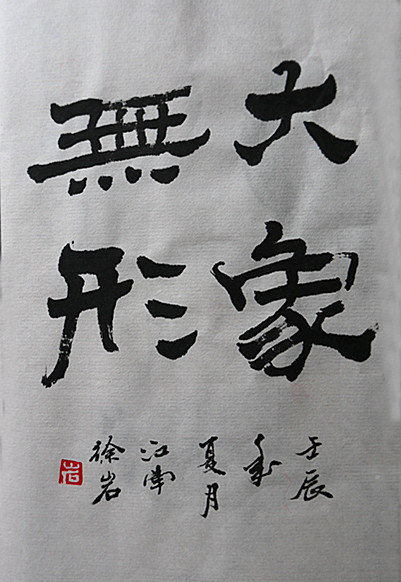 大象
無形
壬辰
年
夏月
江南
徐岩
岩